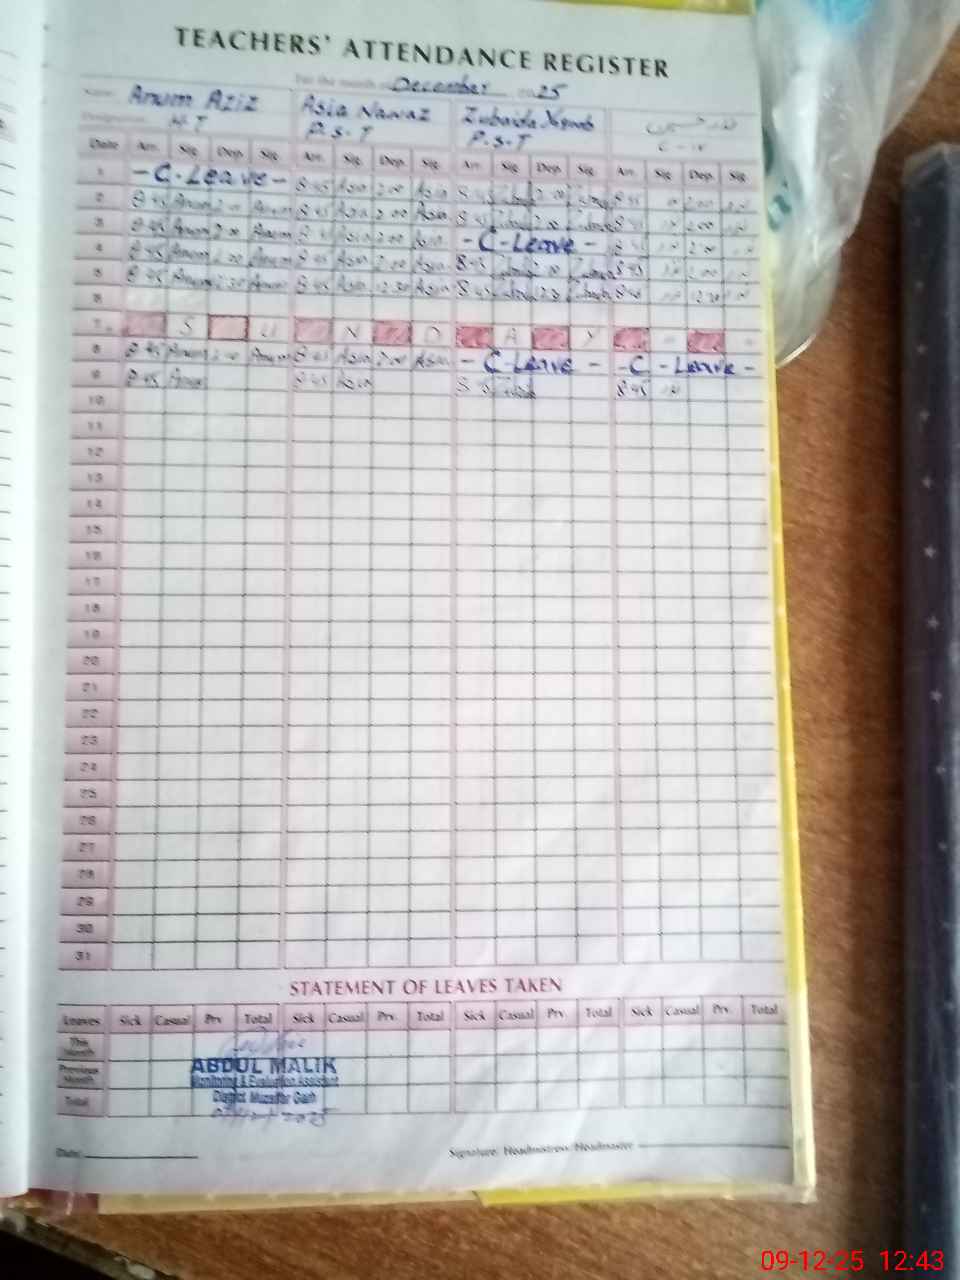 TEACHERS' ATTENDANCE REGISTER
For the month of December 2025
Name: Anum Aziz Asia Nawaz Zubaida
Designation H.T P.S.T P.S.T
Date Arr. Sig. Dep. Sig. Arr. Sig. Dep. Sig. Arr. Sig. Dep. Sig. Arr. Sig. Dep. Sig.
1 - C-Leave - 8 45 Asia 2 00 Asia 8 45 2 00 8 45 2 00
2 8 45 Anum 2 00 Anum 8 45 Asia 2 00 Asia 8 45 2 00 8 45 2 00
3 8 45 Anum 2 00 Anum 8 45 Asia 2 00 Asia - C-Leave - 8 45 2 00
4 8 45 Anum 2 00 Anum 8 45 Asia 2 00 Asia 8 45 2 00 8 45 2 00
5 8 45 Anum Anum 8 45 Asia 12 30 Asia 8 45 8 45 12 30
6
7 S U N D A Y
8 8 45 Anum 2 00 Anum 8 45 Asia 2 00 Asia - C-Leave - - C - Leave -
9 8 45 Anum 8 45 Asia 8 45 8 45
10
11
12
13
14
15
16
17
18
19
20
21
22
23
24
25
26
27
28
29
30
31
STATEMENT OF LEAVES TAKEN
Leaves Sick Casual Prv. Total Sick Casual Prv. Total Sick Casual Prv. Total Sick Casual Prv. Total
This Month
Previous Month
Total
ABDUL MALIK
Monitoring & Evaluation Assistant
District Muzaffar Garh
Date: Signature: Headmistress/Headmaster
09-12-25 12:43